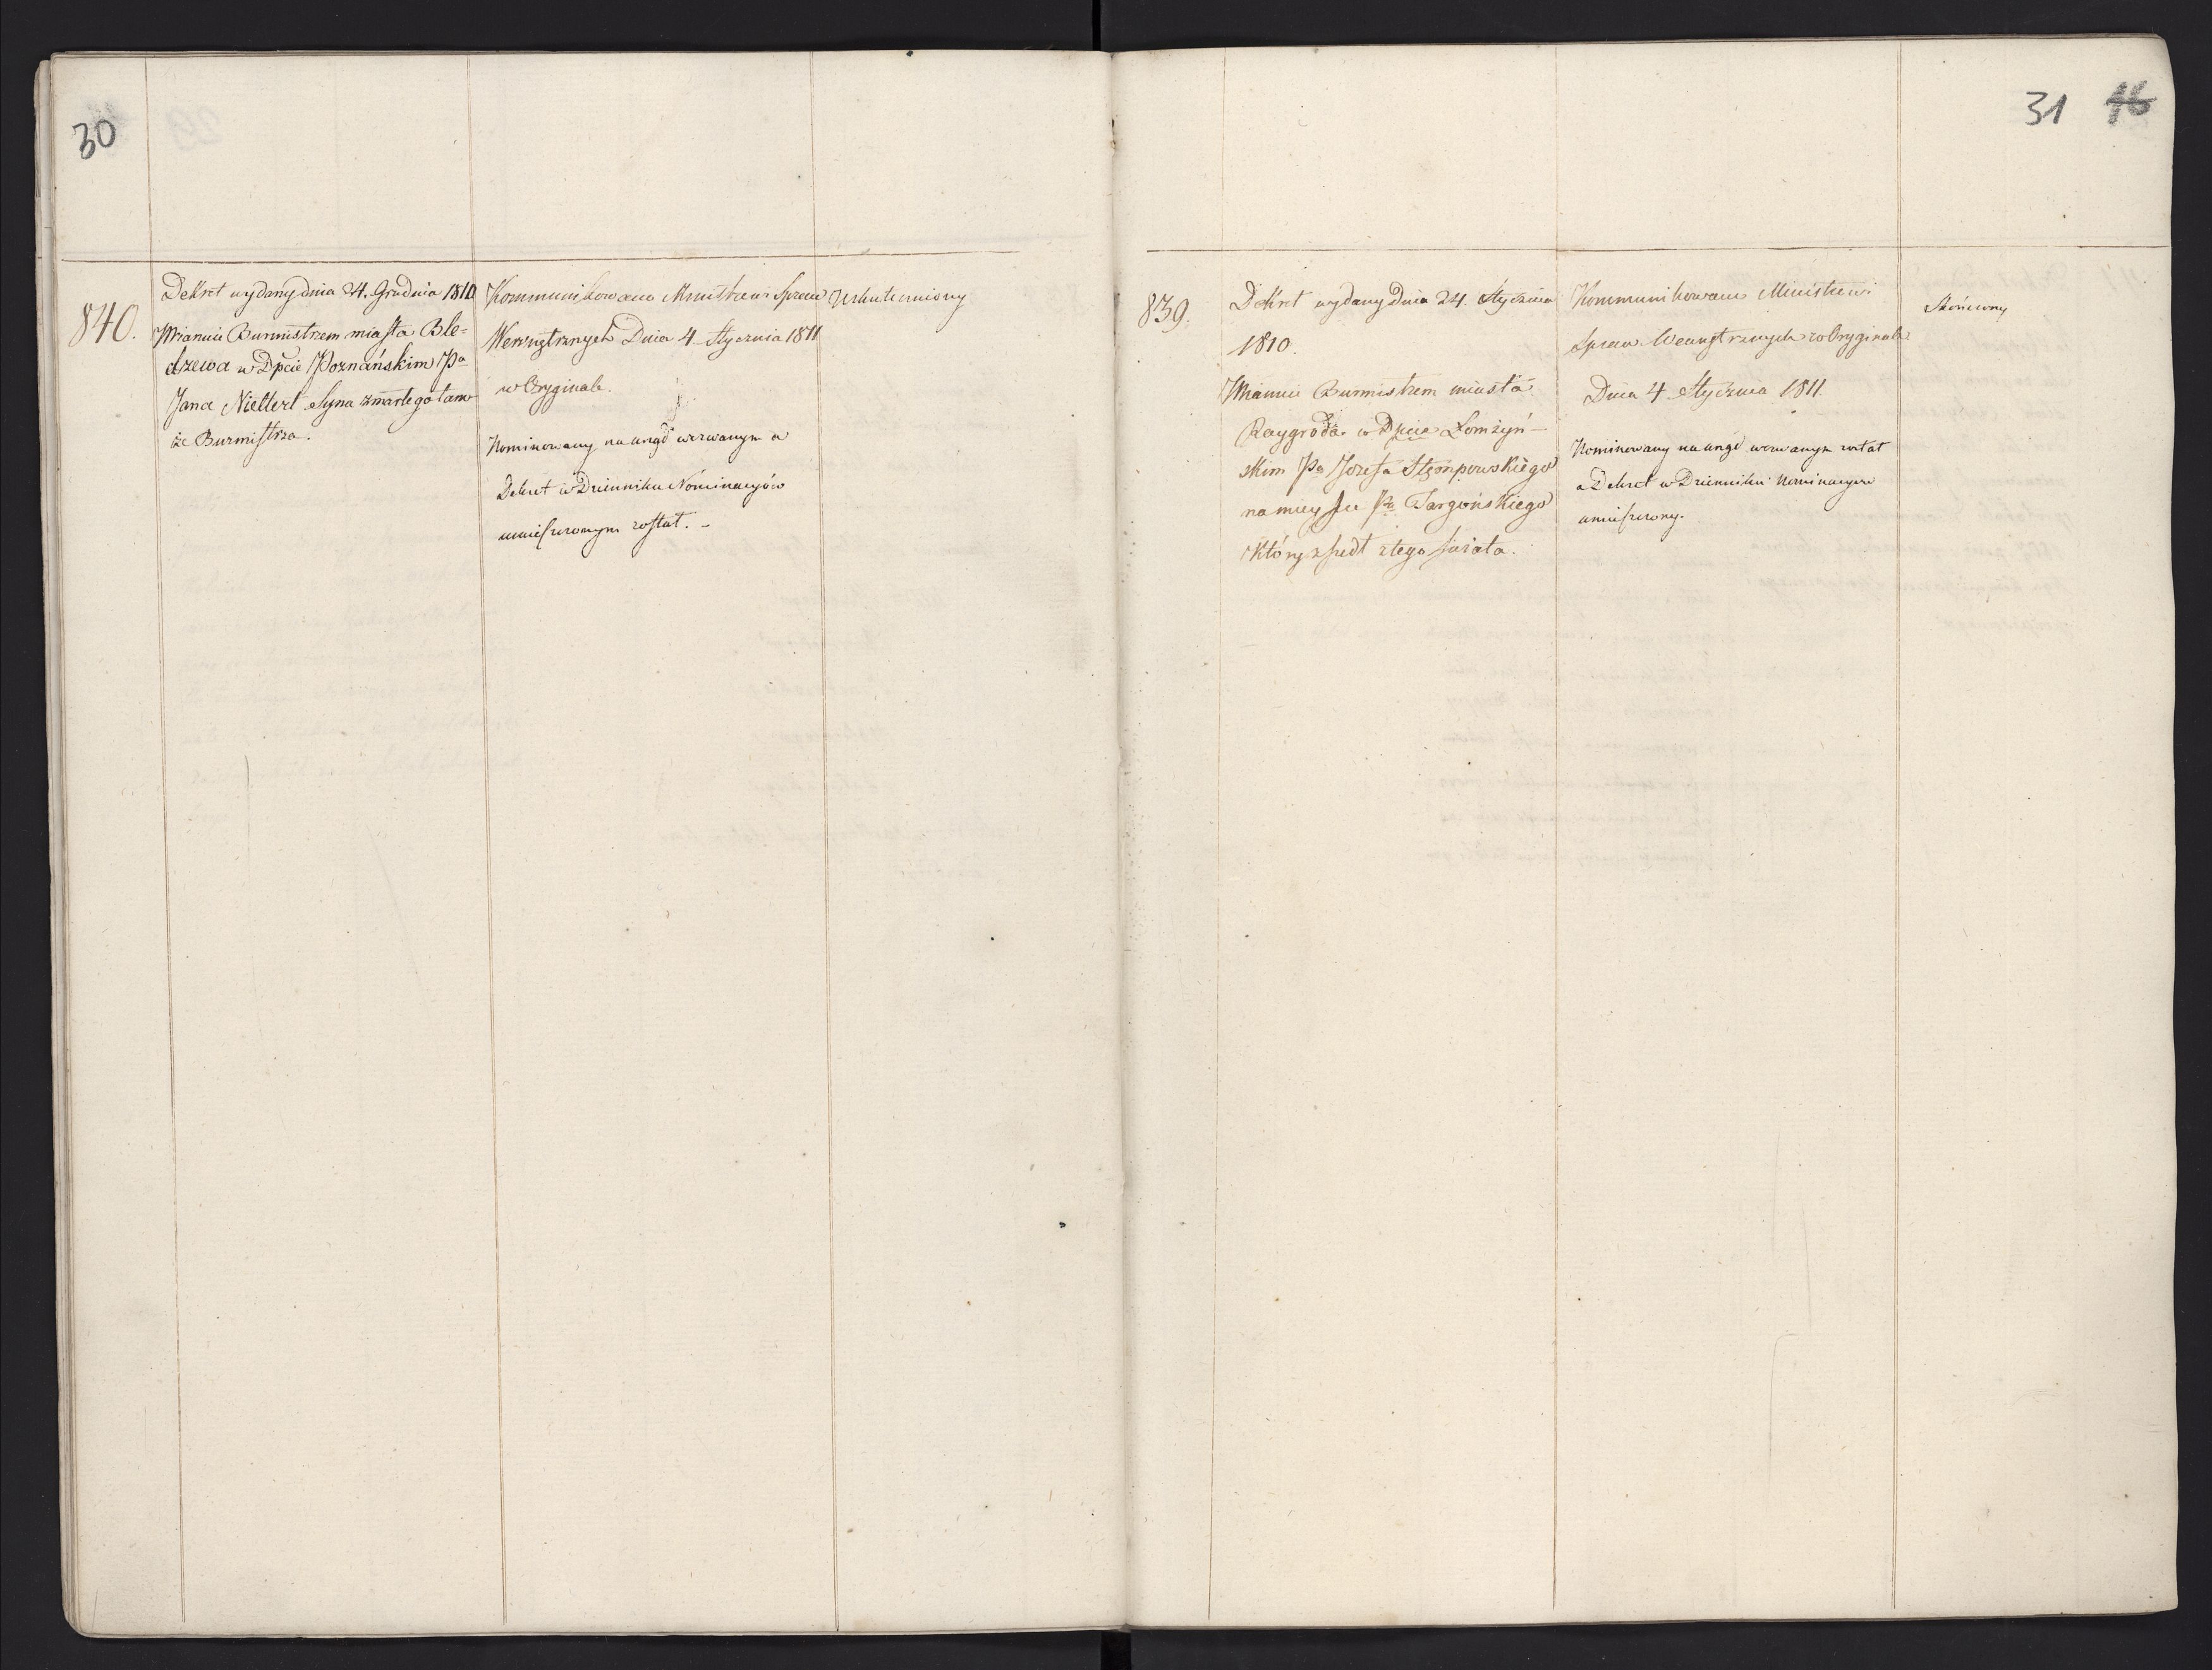 30
840.
Dekret wydany dnia 24. Grudnia 1810
Mianuie Burmistrzem miasta Ble-
dzewa w Dpcie Poznańskim Pa
Jana Nieltert Syna zmarłego tam-
że Burmistrza.
Kommunikowano Ministrowi Spraw
Wewnętrznych Dnia 4 Stycznia 1811
w Oryginale.
Nominowany na urząd wezwanym a
Dekret w Dzienniku Nominacyów
umieszczonym został. -
Uskuteczniony
31 46
839.
Dekret wydany dnia 24. Stycznia
1810.
Mianuie Burmistrzem miasta
Raygroda w Dpcie Łomżyń-
skim Pa Jozefa Stąmpowskiego
na mieysce Pa Targońskiego
Który zszedł z tego świata.
Kommunikowano Ministrowi
Spraw Wewnętrznych w Oryginale
Dnia 4 Stycznia 1811.
Nominowany na urząd wezwanym został
a Dekret w Dzienniku Nominacyow
umieszczony.
Skończony